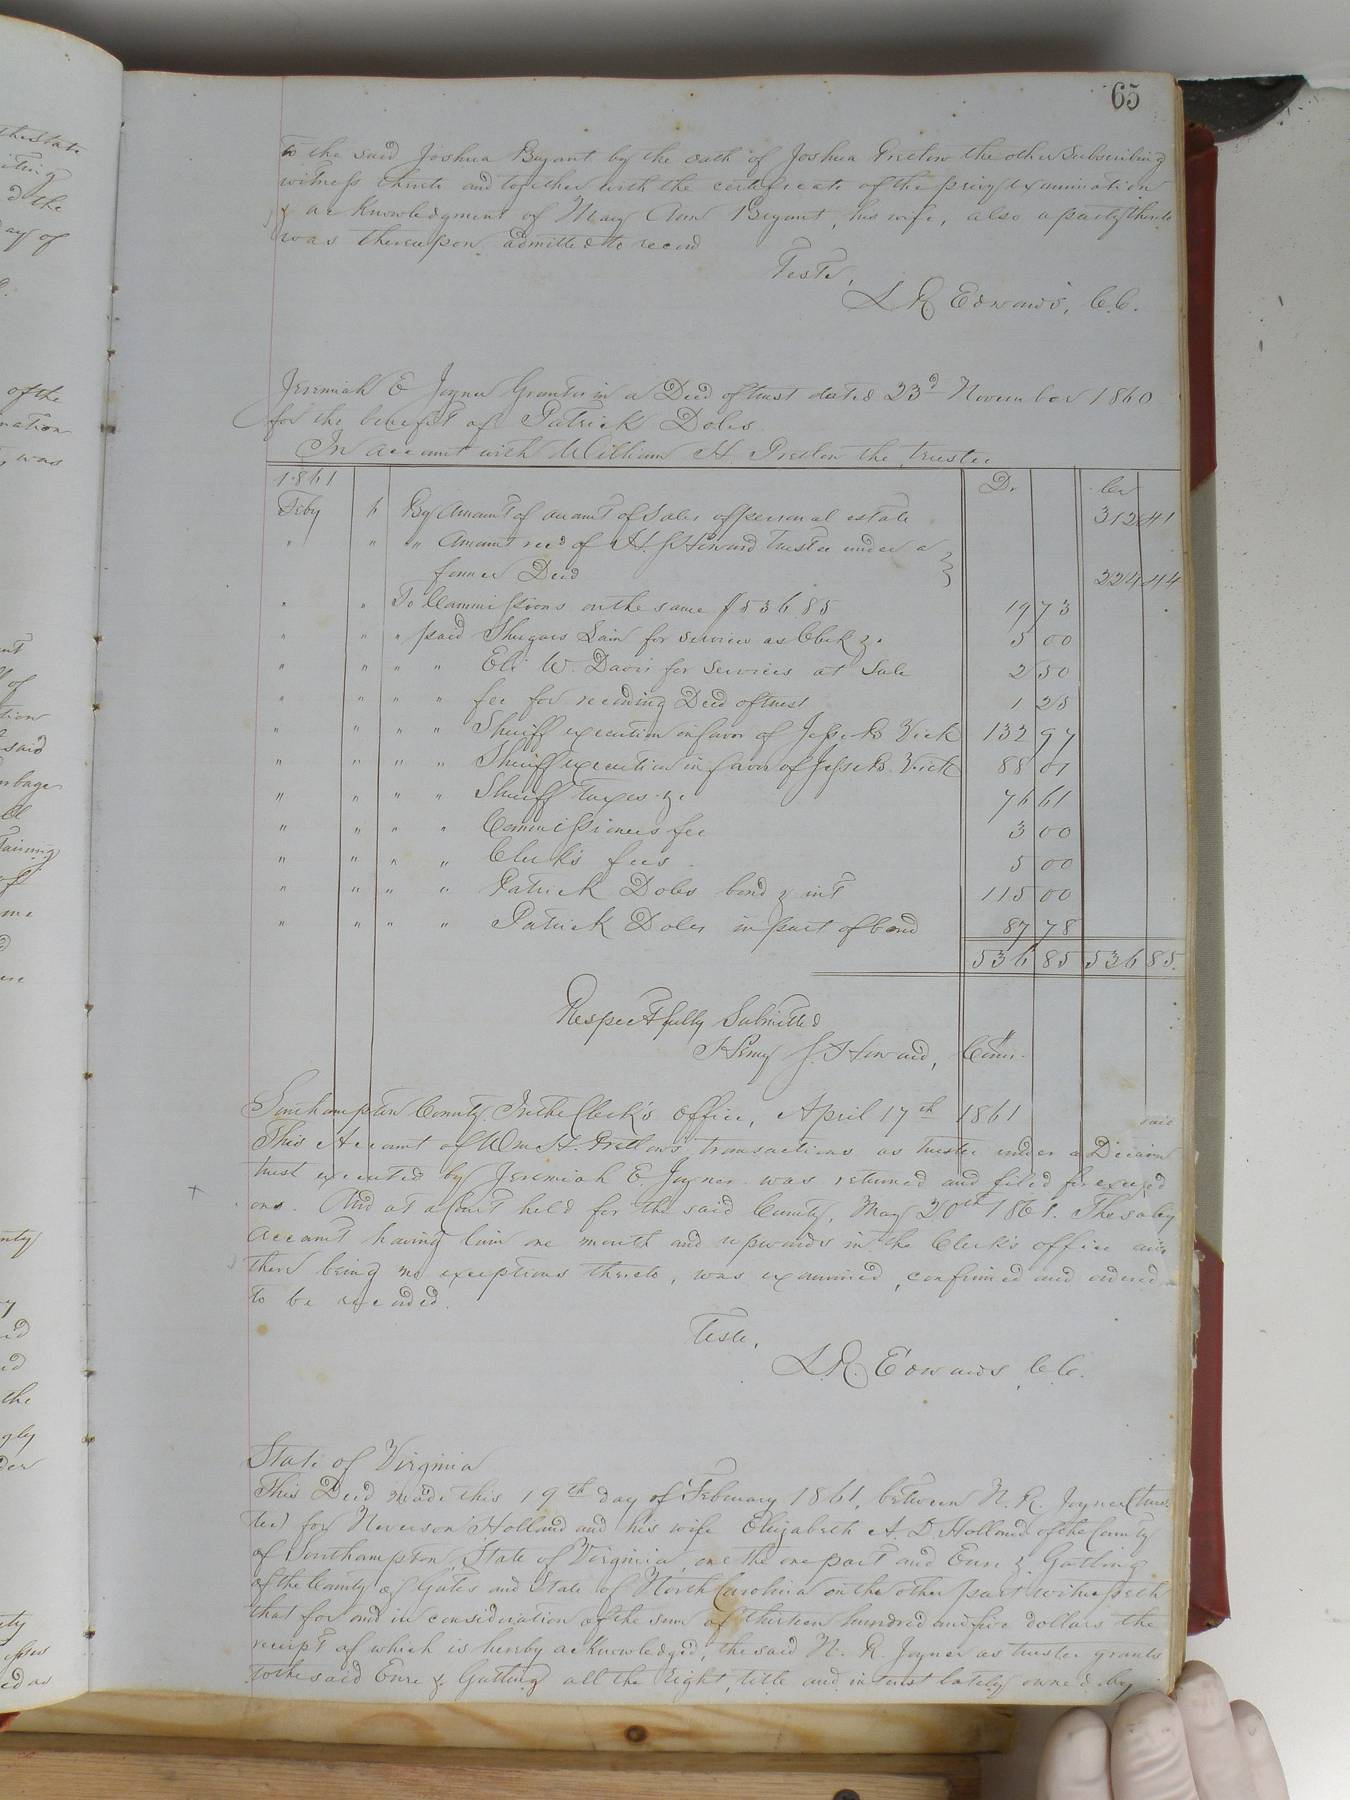 65
to the said Joshua Bryant by the oath of Joshua Pretlow the other Subscribing
witness thereto and together with the certificate of the privy examination
& acknowledgment of Mary Ann Bryant, his wife, also a party thereto
was thereupon admitted to record
Teste,
L R Edwards, C.C.
Jeremiah E Joyner Grantor in a Deed of trust dated 23d November 1860
for the benefit of Patrick Doles
In account with William H Pretlow the trustee
1861 Dr Cr
Feby By Amount of amount of Sales of personal estate 312 41
" " " Amount recd of H. J Howard trustee under a
former Deed 224 44
" " To Commissions on the same $536 85 19 73
" " " paid Shugars Lain for services as Clerk &c 5 00
" " " " Eli W. Davis for Services at Sale 2 50
" " " " fee for recording Deed of trust 1 25
" " " " Sheriff execution in favor of Jesse B Vick 132 97
" " " " Sheriff execution in favor of Jesse B. Vick 88 01
" " " " Sheriff taxes &c 76 61
" " " " Commissioners fee 3 00
" " " " Clerk's fees 5 00
" " " " Patrick Doles bond & int 115 00
" " " " Patrick Doles in part of bond 87 78
536 85 536 85
Respectfully Submitted
Henry J. Howard, Comr.
Southampton County In the Clerk's Office, April 17th 1861
This Account of Wm H. Pretlow's transactions as trustee under a Deed
trust executed by Jeremiah E. Joyner was returned and filed for
ons. And at a Court held for the said County, May 20th 1861. The
account having lain one month and upwards in the Clerk's office
there being no exceptions thereto, was examined, confirmed and ordered
to be recorded.
Teste,
L.R. Edwards, C.C.
State of Virginia
This Deed made this 19th day of February 1861, between N. R. Joyner (trus-
tee) for Neverson Holland and his wife Elizabeth A. D Holland of the County
of Southampton State of Virginia one the one part and Eure & Gatling
of the County of Gates and State of North Carolina on the other part witnesseth
that for and in consideration of the sum of thirteen hundred and five dollars the
receipt of which is hereby acknowledged, the said N. R. Joyner as trustee grants
to the said Eure & Gatling all the Right, title and interest lately owned by